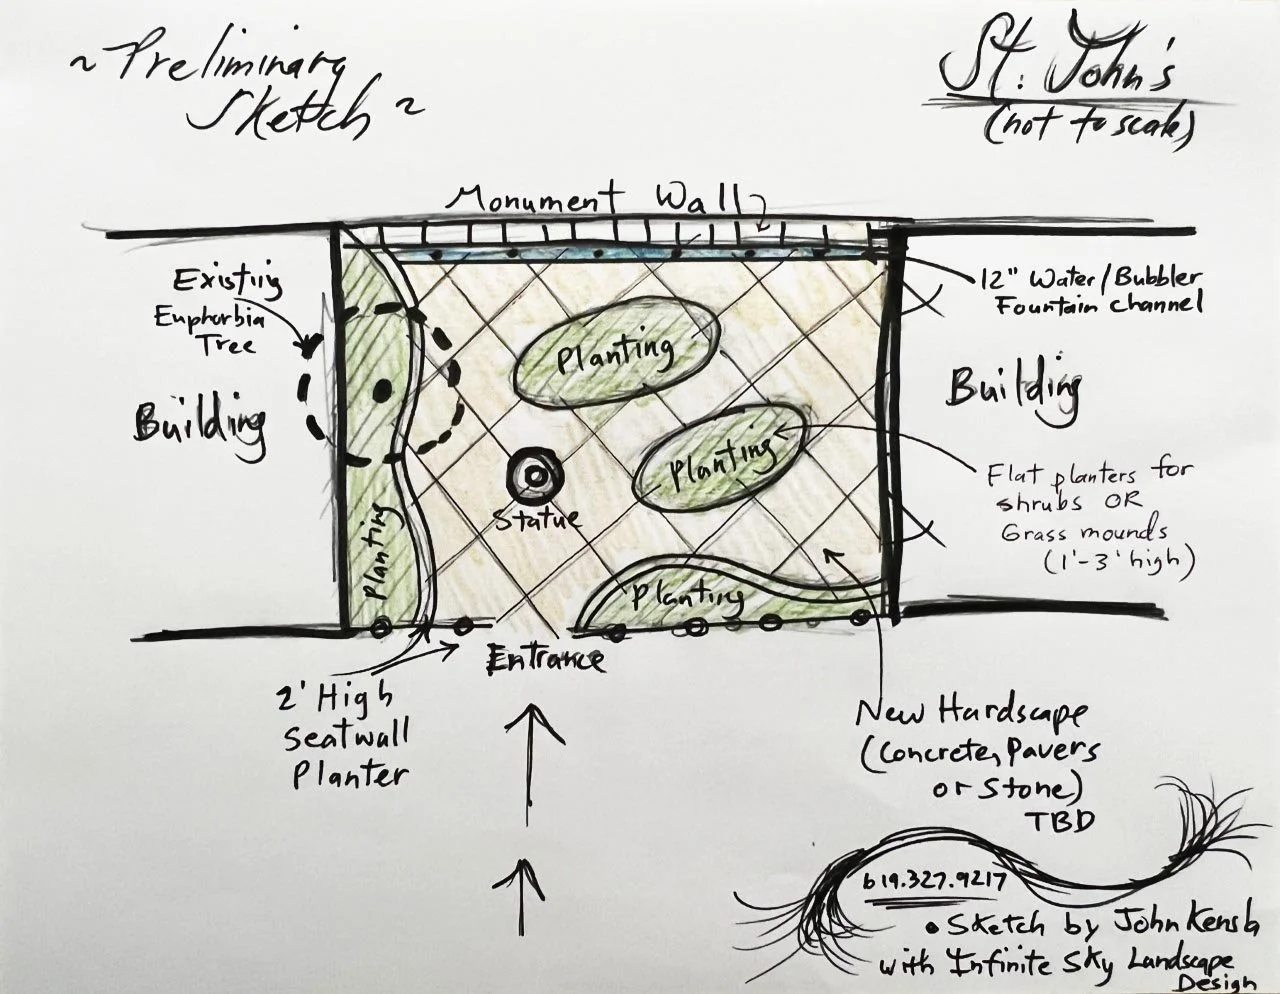 ~ Preliminary
Sketch ~
St. John's
(not to scale)
Monument Wall
Existing
Euphorbia
Tree
12" Water/Bubbler
Fountain channel
Building
Building
Planting
Planting
Flat planters for
shrubs OR
Grass mounds
(1'-3' high)
Statue
Planting
Planting
Entrance
2' High
Seatwall
Planter
New Hardscape
(Concrete, Pavers
or Stone)
TBD
619.327.9217
• Sketch by John
with Infinite Sky Landscape
Design